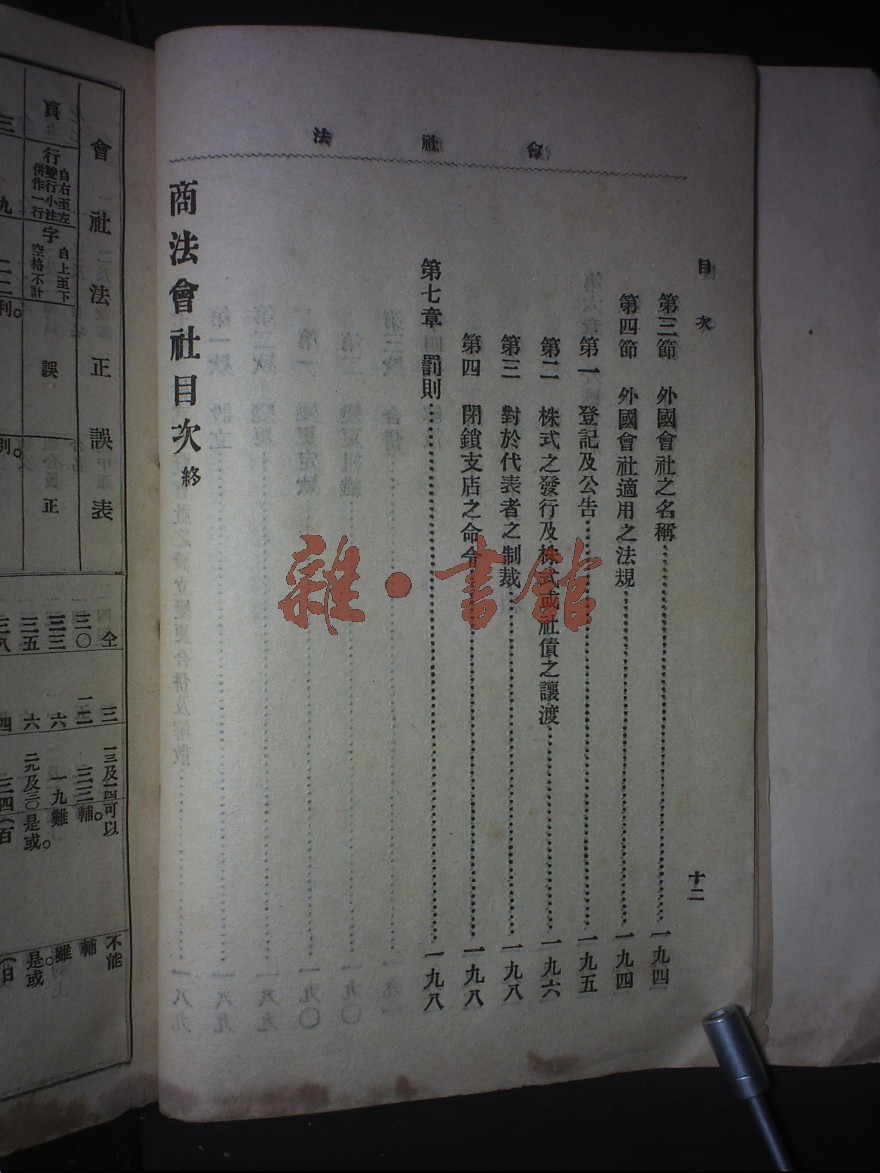 會社法
目次
十二
第三節　外國會社之名稱……一九四
第四節　外國會社適用之法規……一九四
第一　登記及公告……一九五
第二　株式之發行及株式或社債之讓渡……一九六
第三　對於代表者之制裁……一九八
第四　閉鎖支店之命令……一九八
第七章　罰則……一九八
商法會社目次終
雜·書館
會社法正誤表
頁
行
自右至左
雙行小注
併作一行
字
自上至下
空格不計
誤
正
仝　三　一三及一四可以　不能
三〇　一二　三三輔。　輔
三三　六　一九難　雖
三五　六　二九及三〇是或。　。是或
三八　四　三四（百　（日
三　九　二二利。　別。